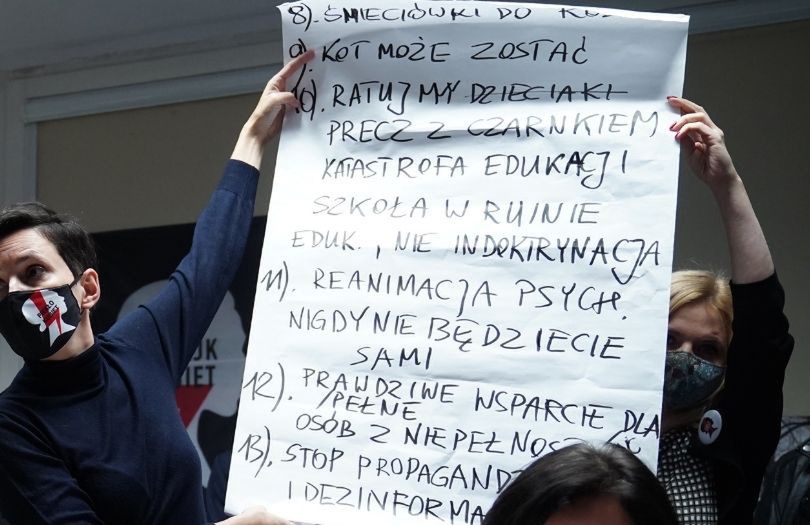 8). ŚMIECIÓWKI DO
9). KOT MOŻE ZOSTAĆ
10). RATUJMY DZIECIAKI
PRECZ Z CZARNKIEM
KATASTROFA EDUKACJI
SZKOŁA W RUINIE
EDUK., NIE INDOKTRYNACJA
11). REANIMACJA PSYCH.
NIGDY NIE BĘDZIECIE
SAMI
12). PRAWDZIWE WSPARCIE DLA
/PEŁNE
OSÓB Z
13). STOP
I